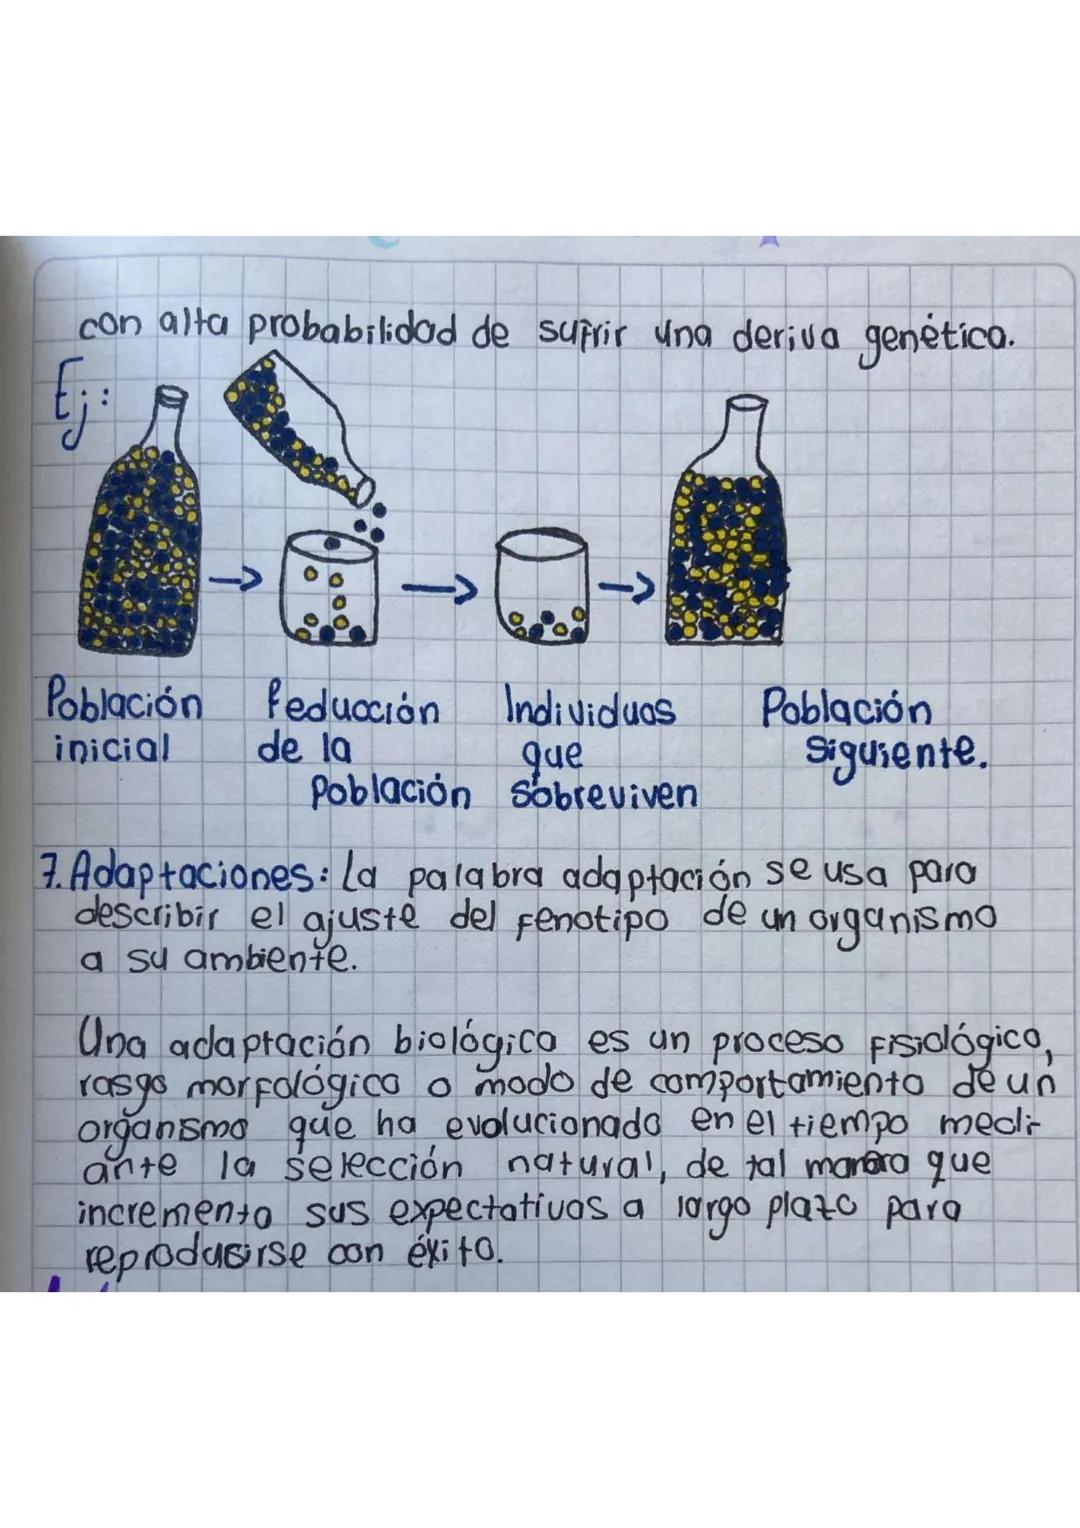 con alta probabilidad de sufrir una deriva genética.
Ej:
Población inicial
Reducción de la Población
Individuos que sobreviven
Población siguiente.
7. Adaptaciones: La palabra adaptación se usa para
describir el ajuste del fenotipo de un organismo
a su ambiente.
Una adaptación biológica es un proceso fisiológico,
rasgo morfológico o modo de comportamiento de un
organismo que ha evolucionado en el tiempo medi-
ante la selección natural, de tal manera que
incremento sus expectativas a largo plazo para
reproducirse con éxito.